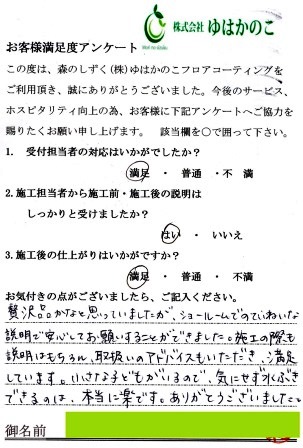 株式会社 ゆはかのこ
Mori no shizuku
お客様満足度アンケート
この度は、森のしずく(株)ゆはかのこフロアコーティングを
ご利用頂き、誠にありがとうございました。今後のサービス、
ホスピタリティ向上の為、お客様に下記アンケートへご協力を
賜りたくお願い申し上げます。 該当欄を○で囲って下さい。
1. 受付担当者の対応はいかがでしたか?
満足 ・ 普通 ・ 不満
2.施工担当者から施工前・施工後の説明は
しっかりと受けましたか?
はい ・ いいえ
3.施工後の仕上がりはいかがですか?
満足 ・ 普通 ・ 不満
お気付きの点がございましたら、ご記入ください。
贅沢品かなと思っていましたが、ショールームでのていねいな
説明で安心してお願いすることができました。施工の際も
説明はもちろん、取扱いのアドバイスもいただき、満足
しています。小さな子どもがいるので、気にせず水ぶき
できるのは、本当に楽です。ありがとうございました。
御名前